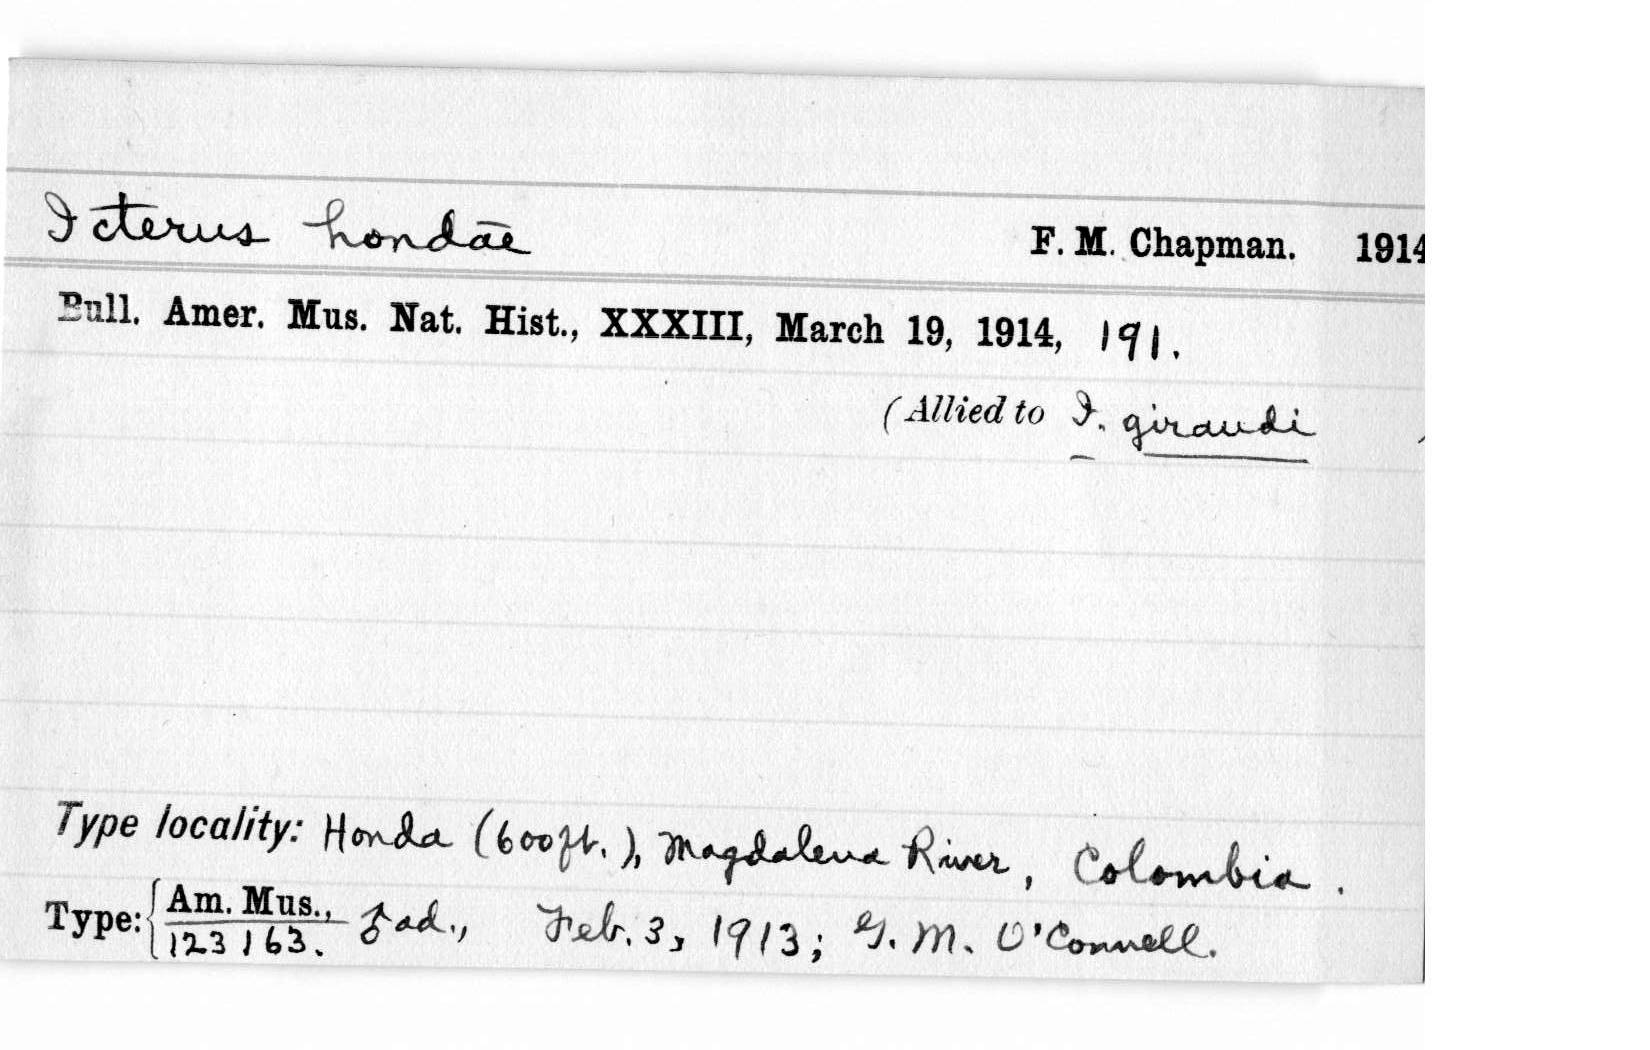 Icterus hondae F. M. Chapman. 1914
Bull. Amer. Mus. Nat. Hist., XXXIII, March 19, 1914, 191.
(Allied to I. giraudi )
Type locality: Honda (600ft.), Magdalena River, Colombia.
Type: { Am. Mus., ♂ ad., Feb. 3, 1913; G. M. O'Connell.
123163.